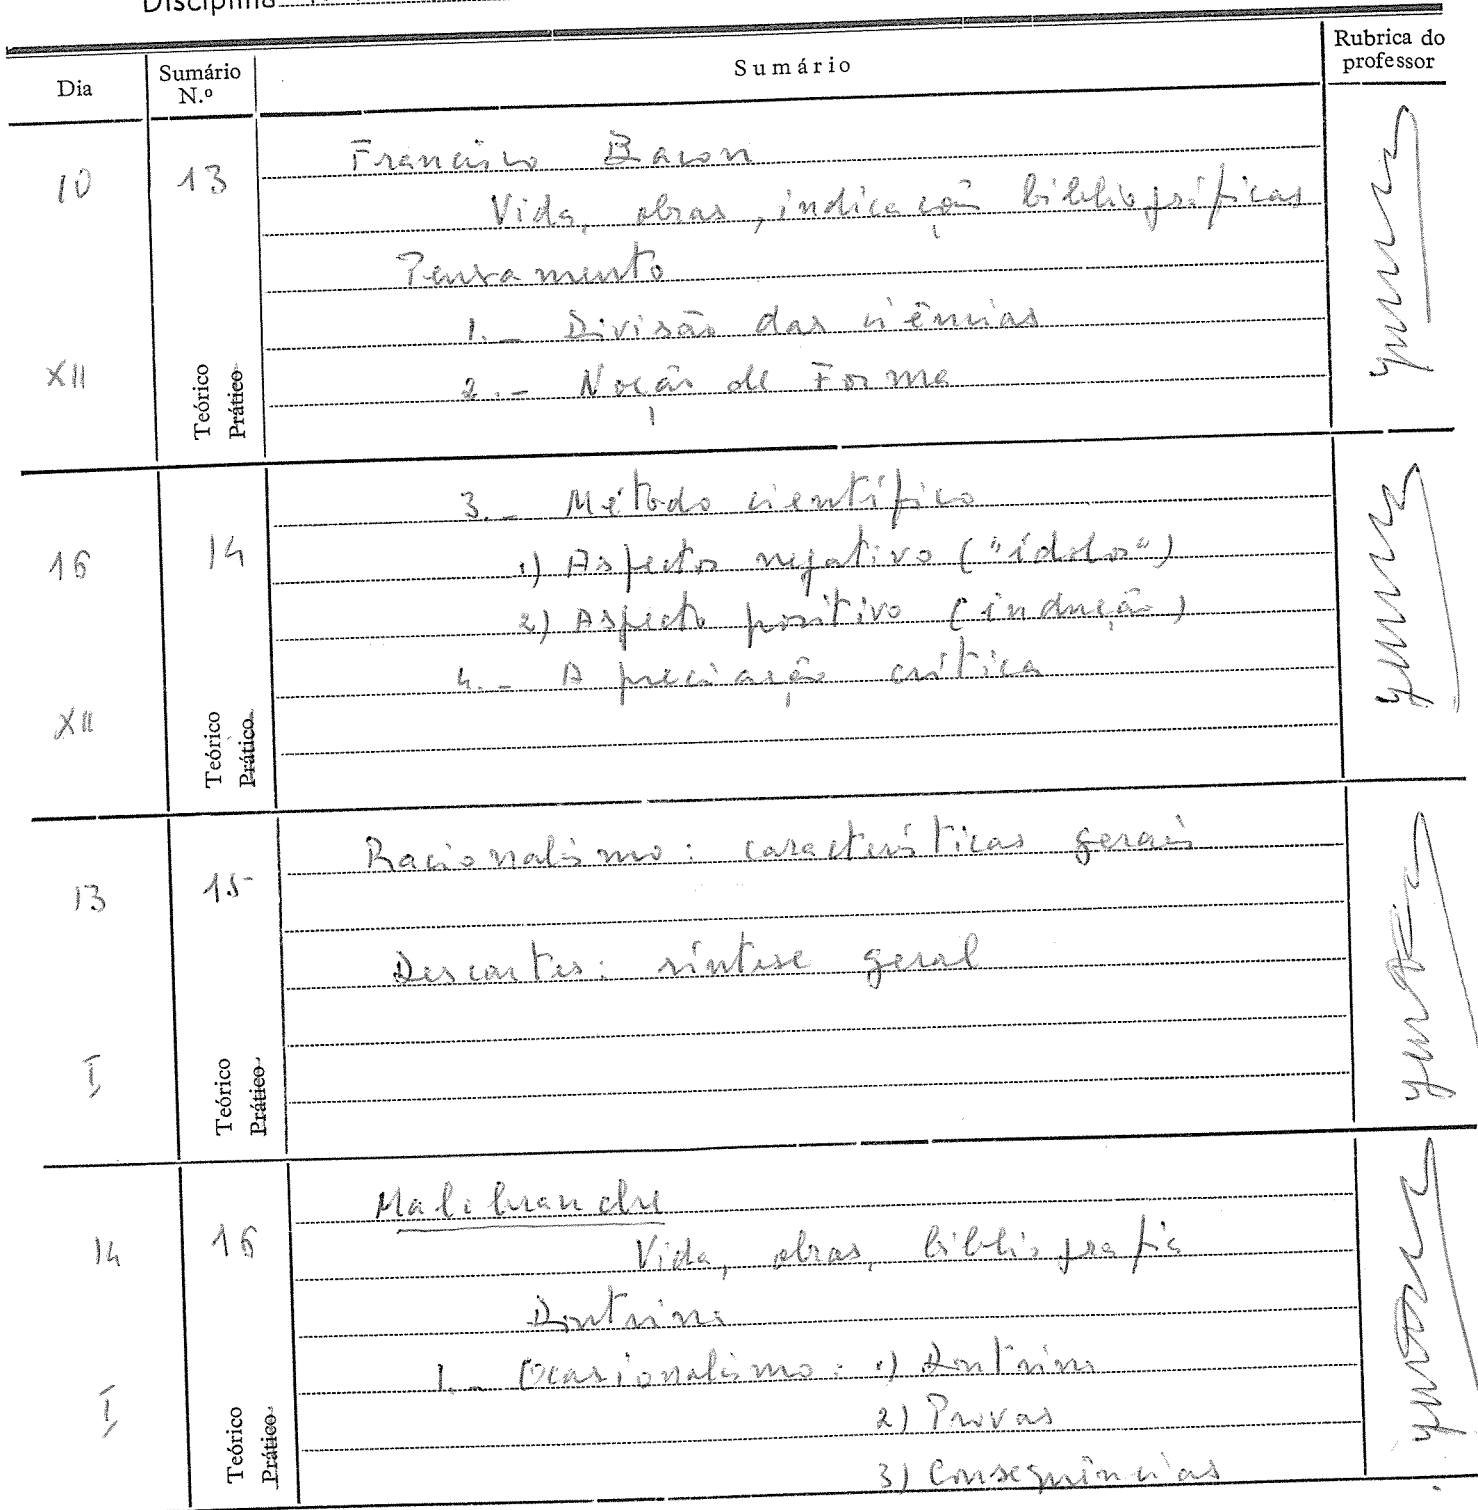 Disciplina
Dia
Sumário N.º
Sumário
Rubrica do professor
10
XII
13
Teórico
Prático
Francisco Bacon
Vida, obras, indicação bibliográficas
Pensamento
1. - Divisão das ciências
2. - Noção de Forma
16
XII
14
Teórico
Prático
3. - Método científico
1) Aspecto negativo ("ídolos")
2) Aspecto positivo (indução)
4. - Apreciação crítica
13
I
15
Teórico
Prático
Racionalismo: características gerais
Descartes: síntese geral
14
I
16
Teórico
Prático
Malebranche
Vida, obras, bibliografia
Doutrina
1. - Ocasionalismo: 1) Doutrina
2) Provas
3) Consequências